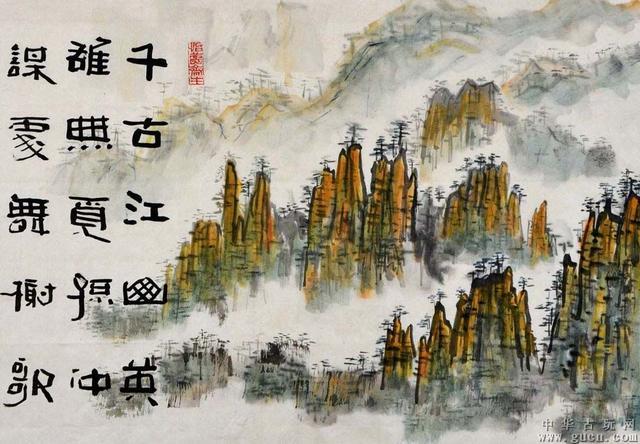 千古江山英
雄無覓孫仲
謀處舞榭歌
中华古玩网
www.gucn.com